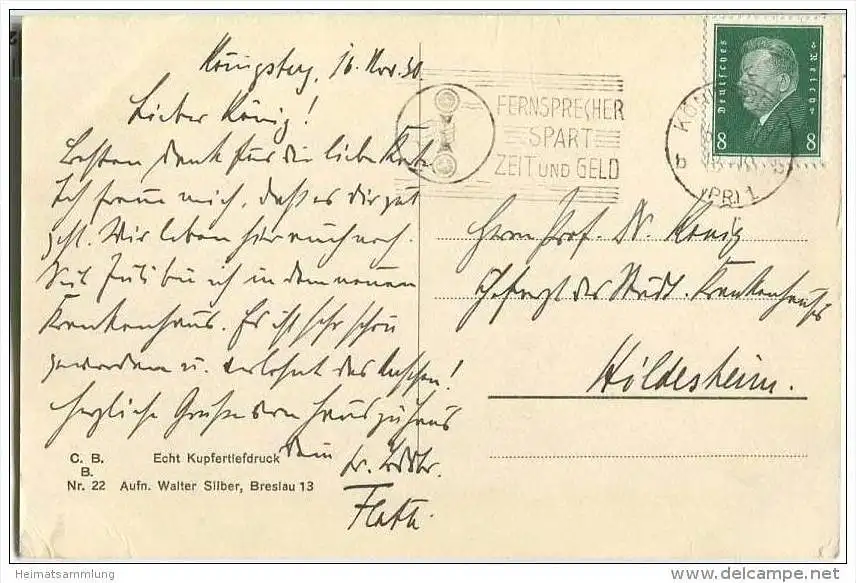 Königsberg, 16. Nov. 30.
Lieber König!
Besten Dank für die liebe Karte.
Ich freue mich, daß es dir gut
geht. Wir leben hier auch noch.
Seit Juli bin ich in dem neuen
Krankenhaus. Es ist sehr schön
geworden u. verlohnt das Ansehen!
Herzliche Grüße von Haus zu Haus
Dein
Flath.
C. B.
B.
Nr. 22
Echt Kupfertiefdruck
Aufn. Walter Silber, Breslau 13
FERNSPRECHER
SPART
ZEIT UND GELD
KÖNI
(PR) 1
b
Deutsches Reich
8 8
Herrn Prof. Dr. König
Chefarzt des Städt. Krankenhauses
Hildesheim.
Heimatsammlung
www.delcampe.net